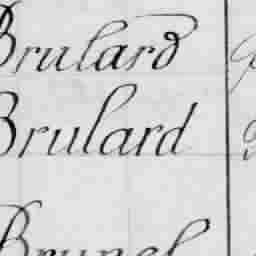 Brulard
Brulard
Brunel